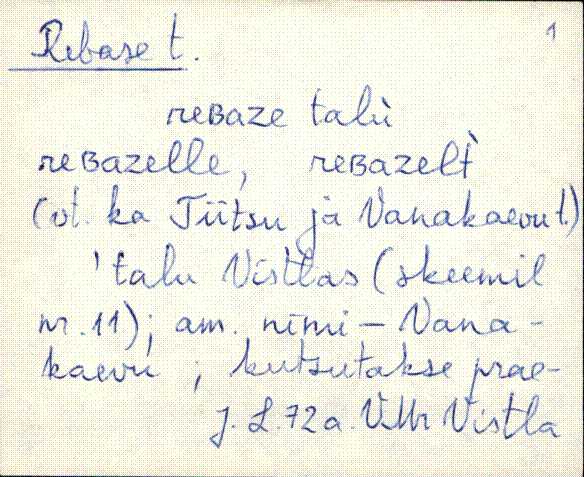 1
Rebase t.
reBaze talù
reBazelle, reBazelt̀
(vt. ka Tiitsu ja Vanakaevu t.)
'talu Vistlas (skeemil
nr. 11); am. nimi – Vana-
kaevu ; kutsutakse prae-
J. L. 72 a. VMr Vistla